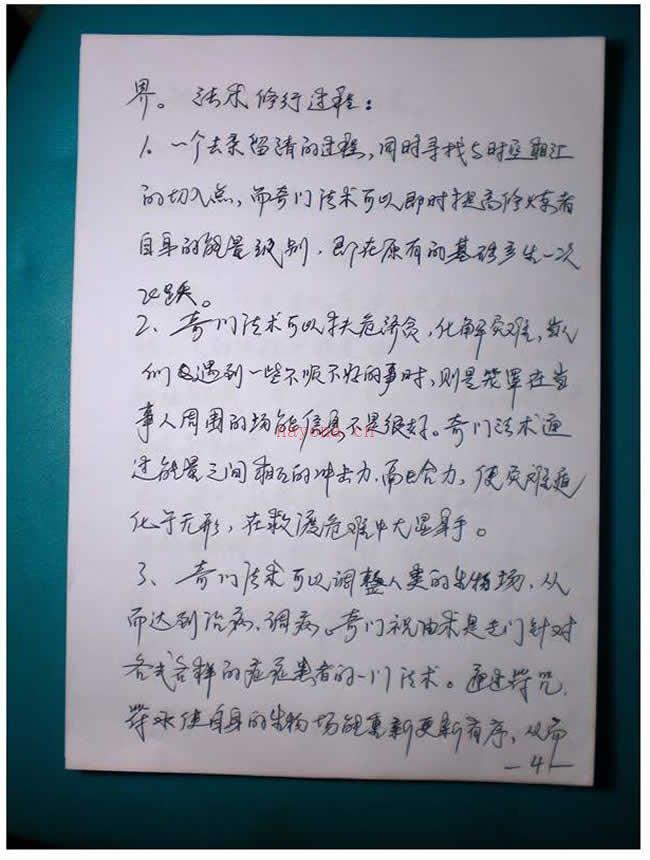 界。法术修行过程：
1、一个去杂留清的过程，同时寻找与时空相汇
的切入点，而奇门法术可以即时提高修炼者
自身的能量级别，即在原有的基础产生一次
飞跃。
2、奇门法术可以扶危济贫，化解灾难，当人
们遇到一些不顺不好的事时，则是笼罩在当
事人周围的场能信息不是很好。奇门法术通
过能量之间相互的冲击力，而合力，使灾难
化于无形，在救渡危难中大显身手。
nayona.cn
3、奇门法术可以调整人类的生物场，从
而达到治病、调病，奇门祝由术是专门针对
各式各样的症患者的一门法术。通过符咒、
符水使自身的生物场能重新更新有序，从而
—4—